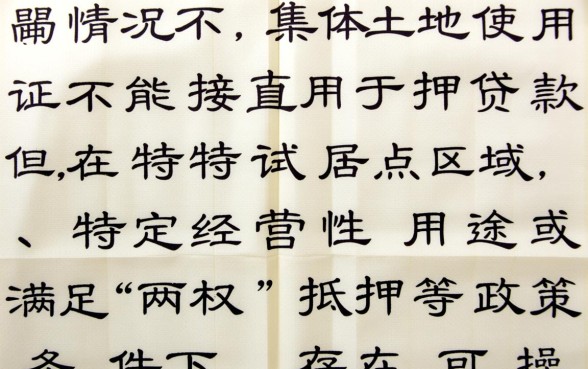 情况不,集体土地使用
证不能接直用于押贷款
但,在特特试居点区域,
、特定经营性 用途或
满足“两权”抵押等政策
条件下 存在可操